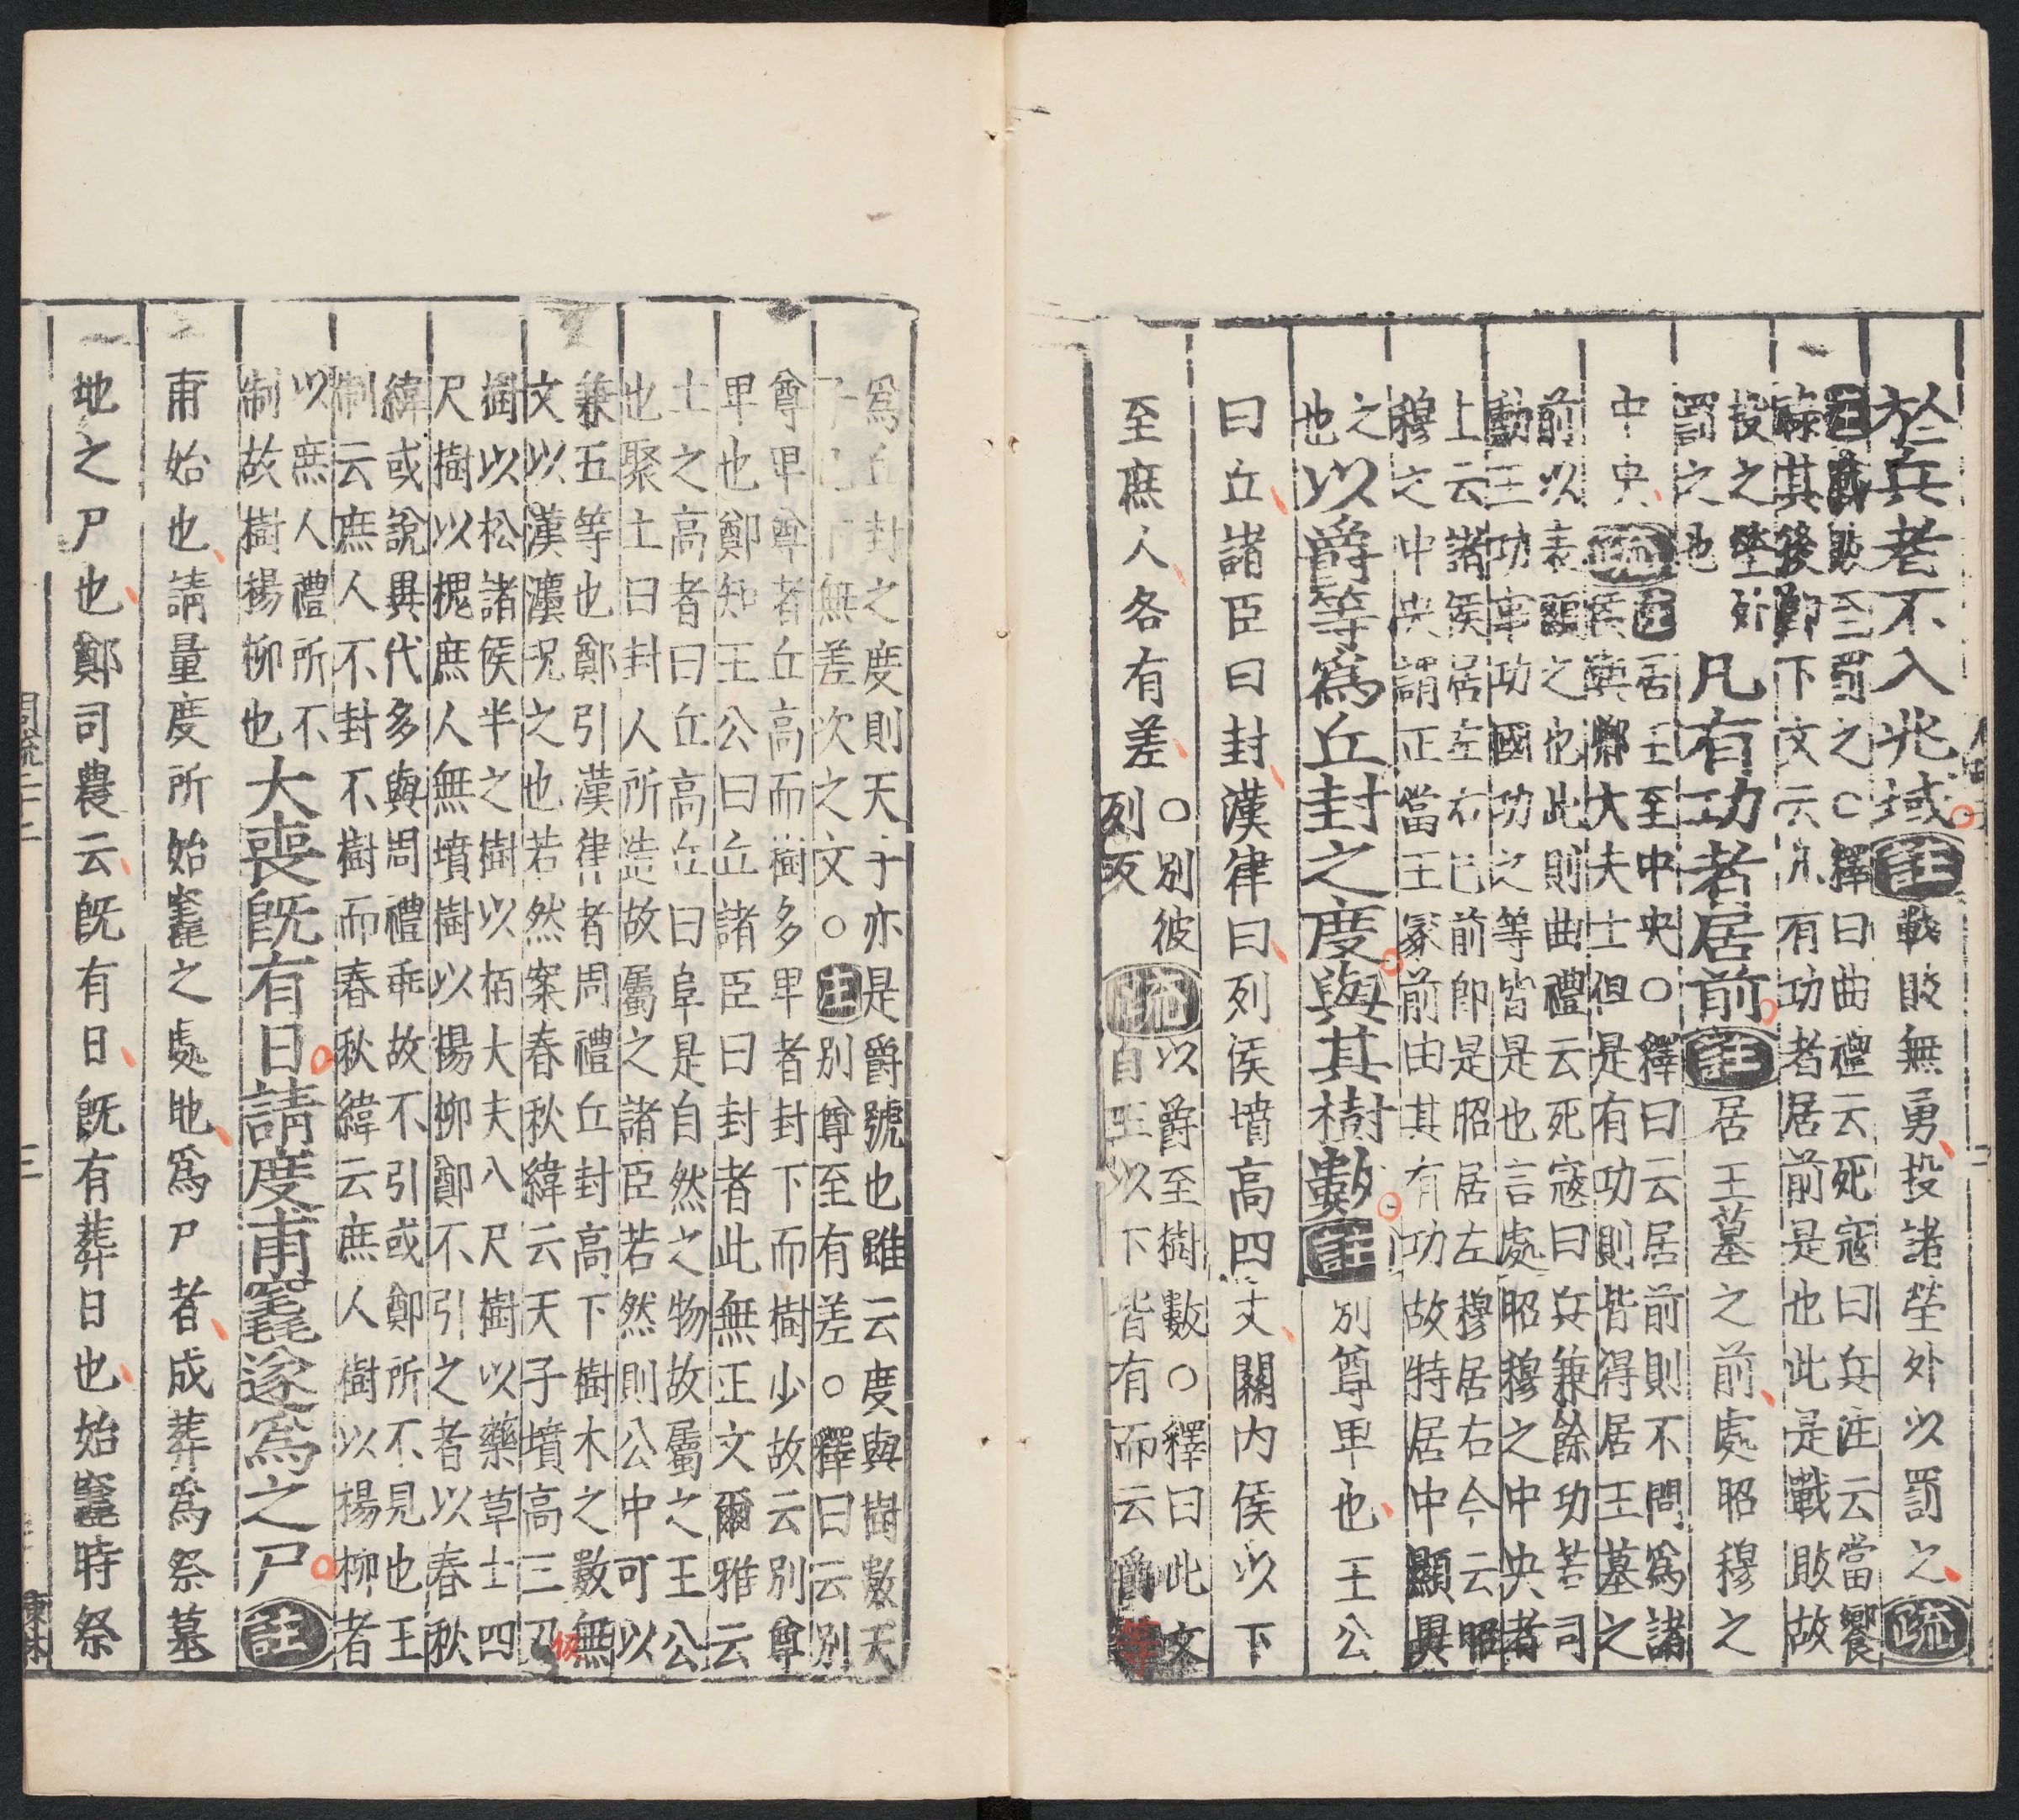 於兵者不入兆域註戰敗無勇投諸塋外以罰之疏
註戰敗至罰之○釋曰曲禮云死寇曰兵注云當饗
祿其後即下文云凡有功者居前是也此是戰敗故
投之塋外
罰之也
凡有功者居前註居王墓之前處昭穆之
中央疏
註居王至中央○釋曰云居前則不問爲諸
侯與鄉大夫士但是有功則皆得居王墓之
前以表顯之也此則曲禮云死寇曰兵兼餘功若司
勳王功事功國功之等皆是也言處昭穆之中央者
上云諸侯居左右已前即是昭居左穆居右今云昭
穆之中央謂正當王冢前由其有功故特居中顯異
之
也
以爵等爲丘封之度與其樹數註別尊卑也王公
曰丘諸臣曰封漢律曰列侯墳高四丈關內侯以下
至庶人各有差
○別彼
列反
疏
以爵至樹數○釋曰此文
自王以下皆有而云爵等
爲丘封之度則天子亦是爵號也雖云度與樹數天
子已下無差次之文○註別尊至有差○釋曰云別
尊卑尊者丘高而樹多卑者封下而樹少故云別尊
卑也鄭知王公曰丘諸臣曰封者此無正文爾雅云
土之高者曰丘高丘曰阜是自然之物故屬之王公
也聚土曰封人所造故屬之諸臣若然則公中可以
兼五等也鄭引漢律者周禮丘封高下樹木之數無
文以漢灋況之也若然案春秋緯云天子墳高三刃仞
樹以松諸侯半之樹以栢大夫八尺樹以藥草士四
尺樹以槐庶人無墳樹以楊柳鄭不引之者以春秋
緯或說異代多與周禮乖故不引或鄭所不見也王
制云庶人不封不樹而春秋緯云庶人樹以楊柳者
以庶人禮所不
制故樹楊柳也
大喪既有日請度甫竁遂爲之尸註
甫始也請量度所始竁之處地爲尸者成葬爲祭墓
地之尸也鄭司農云既有日既有葬日也始竁時祭